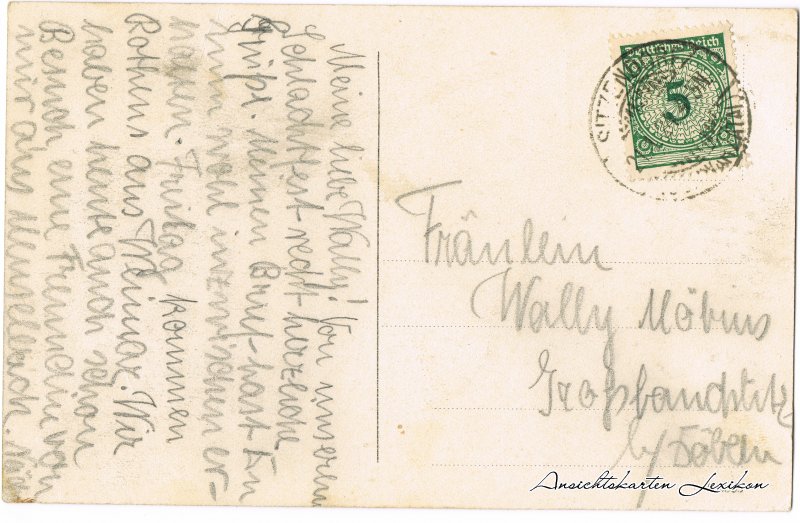 Meine liebe Wally! Von unserem
Schlachtfest recht herzliche
Grüße. Meinen Brief hast Du
nun wohl inzwischen er=
halten. Freitag kommen
Rothens aus Weimar. Wir
haben heute auch schon
Besuch eine Freundin von
mir aus
Deutsches Reich
5
SITZENRODA
Fräulein
Wally Möbius
Großbauchlitz
b/ Döbeln
Ansichtskarten Lexikon